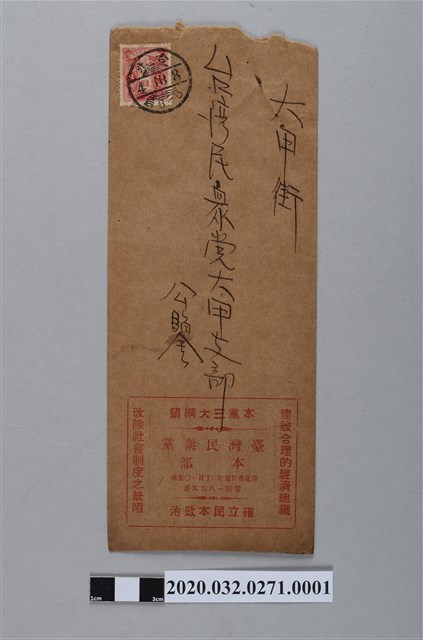 大甲街
台湾民眾党大甲支部
公鑒
建設合理的經濟組織
本黨三大綱領
臺灣民衆黨
本部
確立民本政治
改除社會制度之缺陷
1cm
3cm
2020.032.0271.0001